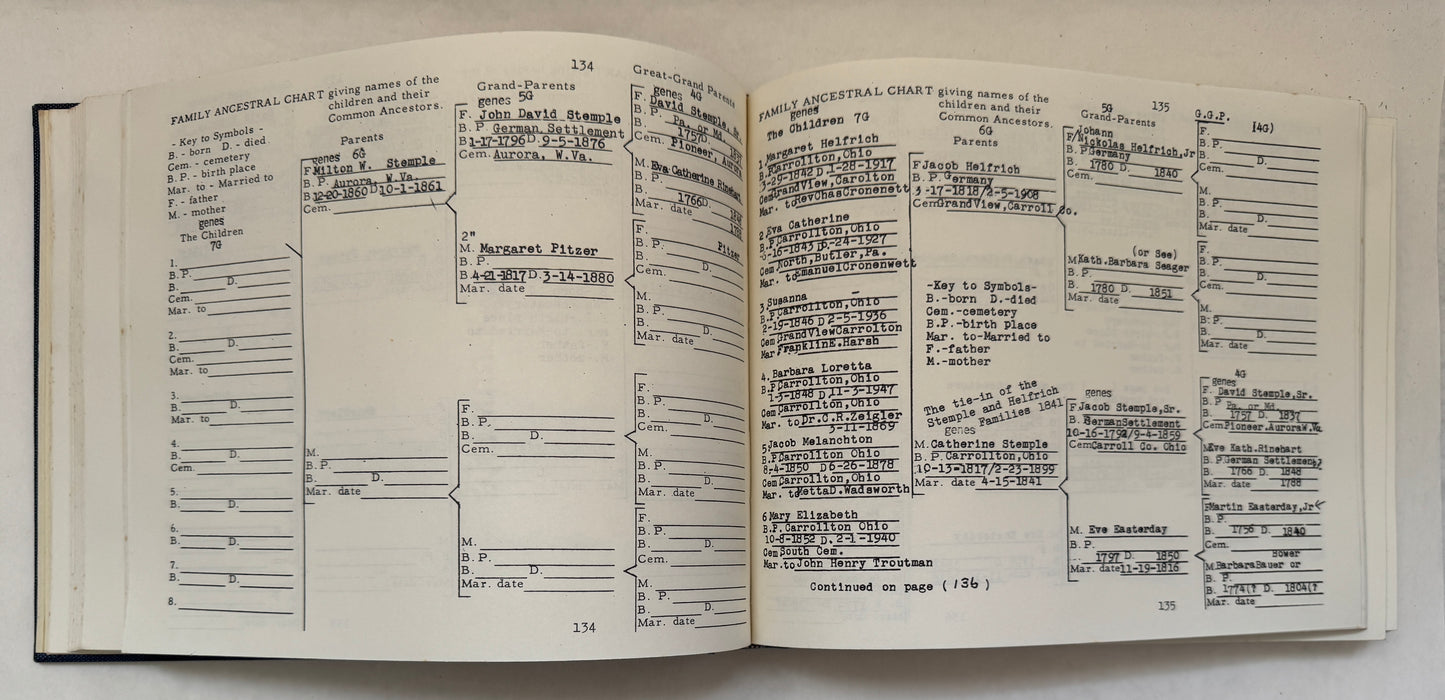 134
FAMILY ANCESTRAL CHART giving names of the
children and their
Common Ancestors.
- Key to Symbols -
B. - born D. - died
Cem. - cemetery
B.P. - birth place
Mar. to - Married to
F. - father
M. - mother
genes
The Children
7G
1.
B.P.
B. D.
Cem.
Mar. to
2.
B. D.
Cem.
Mar. to
3.
B. D.
Mar. to
4.
B. D.
Cem.
5.
B. D.
6.
B. D.
7.
B. D.
8.
Parents
genes 6G
F Milton W. Stemple
B.P. Aurora, W.Va.
B 12-20-1860 D 10-1-1861
Cem.
M.
B.P.
B. D.
Mar. date
Grand-Parents
genes 5G
F. John David Stemple
B.P. German Settlement
B 1-17-1796 D. 9-5-1876
Cem. Aurora, W.Va.
2"
M. Margaret Pitzer
B.P.
B. 4-21-1817 D. 3-14-1880
Mar. date
F.
B.P.
B. D.
Cem.
M.
B.P.
B. D.
Mar. date
Great-Grand Parents
genes 4G
F. David Stemple, Sr.
B.P. Pa. or Md.
B. 1757 D.
Cem. Pioneer, Aurora
M. Eva Catherine Rinehart
B.P.
B. 1766 D.
Mar. date
F. Pitzer
B.P.
B. D.
Cem.
M.
B.P.
B. D.
Mar. date
F.
B.P.
B. D.
Cem.
M.
B.P.
B. D.
Mar. date
F.
B.P.
B. D.
Cem.
M.
B. P.
B. D.
Mar. date
134
135
FAMILY ANCESTRAL CHART giving names of the
children and their
Common Ancestors.
genes
The Children 7G
1. Margaret Helfrich
B.P. Carrollton, Ohio
3-25-1842 D 1-28-1917
Cem GrandView, Carolton
Mar. to Rev Chas Cronenett
2 Eva Catherine
B.P. Carrollton, Ohio
6-16-1843 D. 6-24-1927
Cem North, Butler, Pa.
Mar. to Emanuel Cronenwett
3 Susanna
B.P Carrollton, Ohio
2-19-1846 D 2-5-1936
Cem GrandView Carrolton
Mar Franklin E. Harsh
4. Barbara Loretta
B.P Carrollton, Ohio
1-3-1848 D 11-3-1947
Cem Carrollton, Ohio
Mar. to Dr. C.R. Zeigler
3-11-1869
5 Jacob Melanchton
B.P Carrollton Ohio
8-4-1850 D 6-26-1878
Cem Carrollton, Ohio
Mar. to Metta D. Wadsworth
6 Mary Elizabeth
B.P. Carrollton Ohio
10-8-1852 D. 2-1-1940
Cem South Cem.
Mar. to John Henry Troutman
Continued on page (136)
6G
Parents
F Jacob Helfrich
B.P. Germany
3-17-1818/2-5-1908
Cem GrandView, Carroll Co.
-Key to Symbols-
B.-born D.-died
Cem.-cemetery
B.P.-birth place
Mar. to-Married to
F.-father
M.-mother
The tie-in of the
Stemple and Helfrich
Families 1841
genes
M. Catherine Stemple
B.P. Carrollton, Ohio
10-13-1817/2-23-1899
Mar. date 4-15-1841
5G
Grand-Parents
Johann
F/Nickolas Helfrich, Jr
B.P Germany
B. 1780 D. 1840
Cem.
(or See)
M Kath. Barbara Seager
B.P.
B. 1780 D. 1851
Mar. date
genes
F Jacob Stemple, Sr.
B. German Settlement
10-16-1792/9-4-1859
Cem Carroll Co. Ohio
M. Eve Easterday
B.P.
1797 D. 1850
Mar. date 11-19-1816
G.G.P. (4G)
F.
B.P.
B. D.
Cem.
M.
B.P.
B. D.
Mar. date
F.
B.P.
B. D.
Cem.
M.
B.P.
B. D.
Mar. date
4G
genes
F. David Stemple, Sr.
B.P Pa. or Md.
B. 1757 D. 1837
Cem Pioneer. Aurora W.Va
M Eve Kath. Rinehart
B.P. German Settlement?
B. 1766 D. 1848
Mar. date 1788
F Martin Easterday, Jr
B.P.
B. 1756 D. 1840
Cem.
Bower
M. Barbara Bauer or
B. P.
B. 1774(? D. 1804(?
Mar. date
135